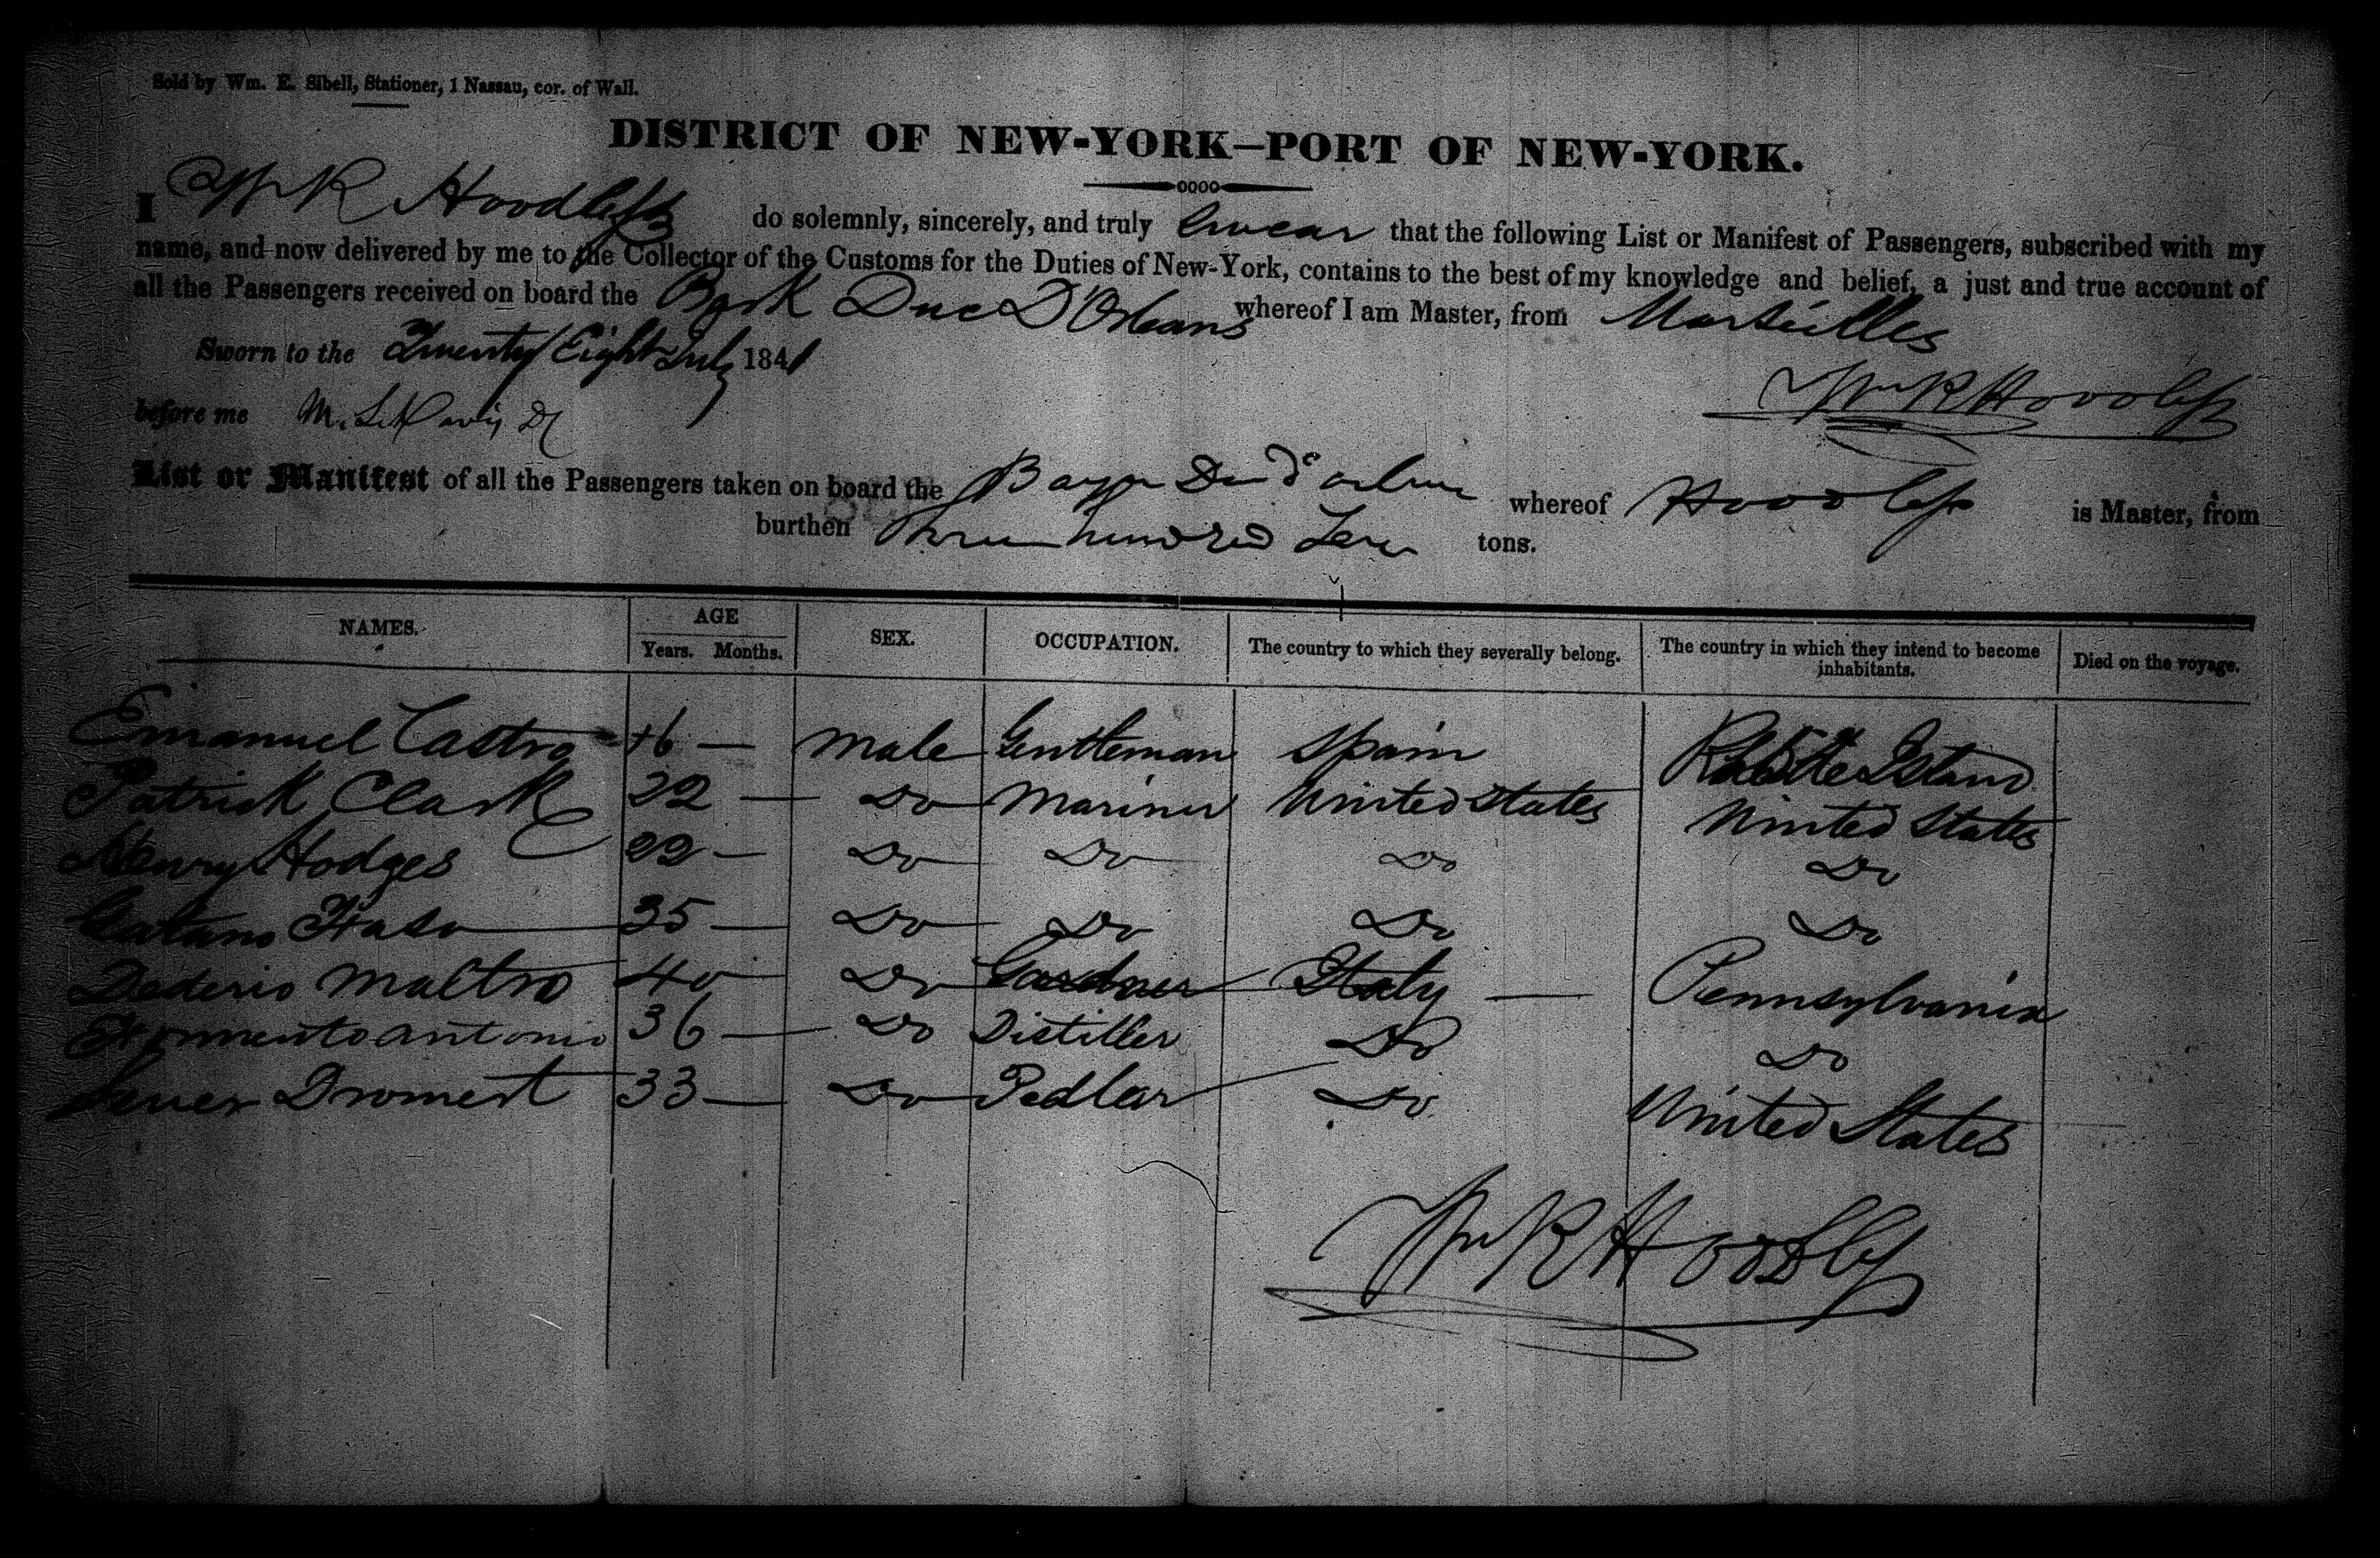 Sold by Wm. E. Sibell, Stationer, 1 Nassau, cor. of Wall.
DISTRICT OF NEW-YORK—PORT OF NEW-YORK.
I Wm R Hoodless do solemnly, sincerely, and truly swear that the following List or Manifest of Passengers, subscribed with my
name, and now delivered by me to the Collector of the Customs for the Duties of New-York, contains to the best of my knowledge and belief, a just and true account of
all the Passengers received on board the Bark Duc D'Orleans whereof I am Master, from Marseilles
Sworn to the Twenty Eight July 1841
Wm R Hoodless
before me M. L. Davis
List or Manifest of all the Passengers taken on board the whereof Hoodless is Master, from
burthen Three hundred tons.
NAMES. AGE SEX. OCCUPATION. The country to which they severally belong. The country in which they intend to become inhabitants. Died on the voyage.
Years. Months.
Emanuel Castro 16 — Male Gentleman Spain Island
Patrick Clark 22 — Do Mariner United States United States
Henry Hodges 22 — Do Do Do Do
35 — Do Do Do Do
40 Do Gardner Italy — Pennsylvania
Antonio 36 — Do Distiller Do Do
33 — Do Pedlar Do United States
Wm R Hoodless